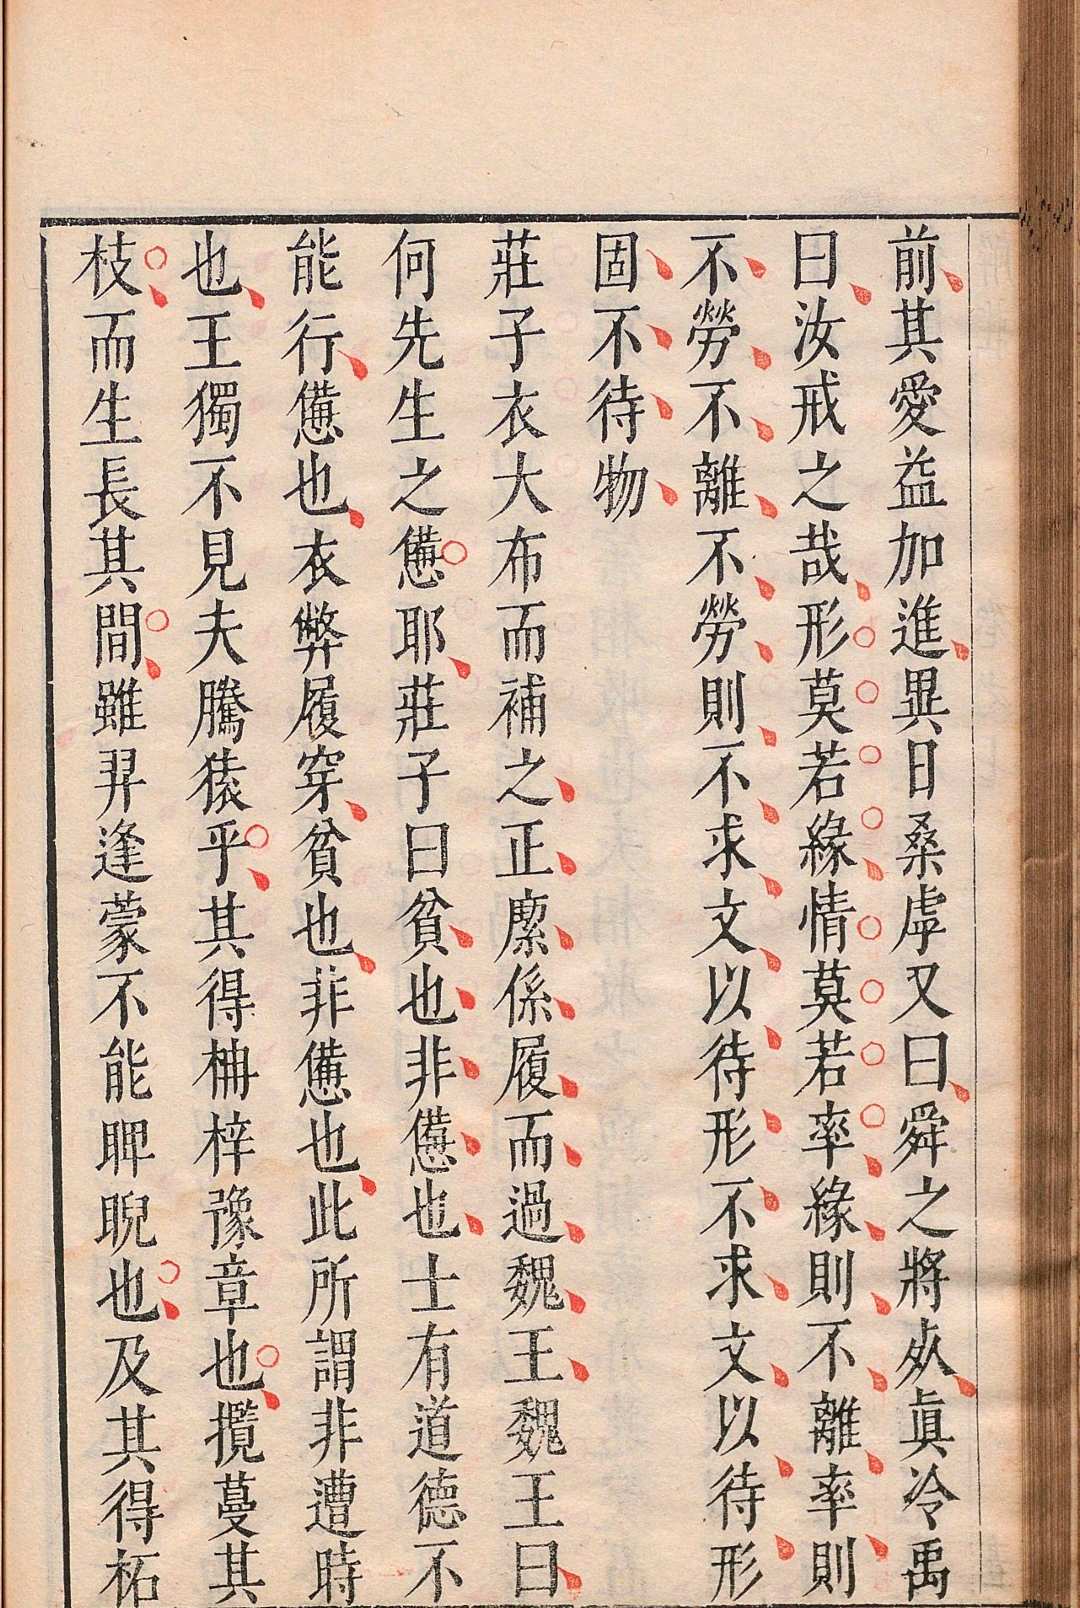 前其愛益加進異日桑虖又曰舜之將死真冷禹
曰汝戒之哉形莫若緣情莫若率緣則不離率則
不勞不離不勞則不求文以待形不求文以待形
固不待物
莊子衣大布而補之正緳係履而過魏王魏王曰
何先生之憊耶莊子曰貧也非憊也士有道德不
能行憊也衣弊履穿貧也非憊也此所謂非遭時
也王獨不見夫騰猿乎其得柟梓豫章也攬蔓其
枝而生長其間雖羿逢蒙不能睥睨也及其得柘